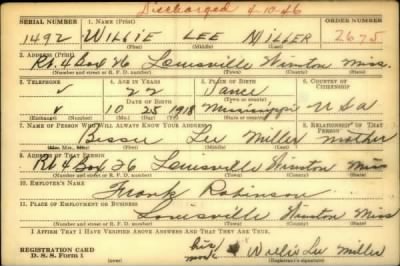 Discharged 4-10-46
SERIAL NUMBER 1. NAME (Print) ORDER NUMBER
1492 WILLIE LEE MILLER 2675
(First) (Middle) (Last)
2. ADDRESS (Print)
Rt. 4 Box 26 Louisville Winston Miss.
(Number and street or R. F. D. number) (Town) (County) (State)
3. TELEPHONE 4. AGE IN YEARS 5. PLACE OF BIRTH 6. COUNTRY OF CITIZENSHIP
22
DATE OF BIRTH (Town or county)
10 28 1918 Mississippi U S A
(Exchange) (Number) (Mo.) (Day) (Yr.) (State or country)
7. NAME OF PERSON WHO WILL ALWAYS KNOW YOUR ADDRESS 8. RELATIONSHIP OF THAT PERSON
Bessie Lee Miller mother
(Mr., Mrs., Miss) (First) (Middle) (Last)
9. ADDRESS OF THAT PERSON
Rt 4 Box 26 Louisville Winston Miss
(Number and street or R. F. D. number) (Town) (County) (State)
10. EMPLOYER'S NAME
Frank Robinson
11. PLACE OF EMPLOYMENT OR BUSINESS
Louisville Winston Miss
(Number and street or R. F. D. number) (Town) (County) (State)
I AFFIRM THAT I HAVE VERIFIED ABOVE ANSWERS AND THAT THEY ARE TRUE.
REGISTRATION CARD
D. S. S. Form 1
his mark Willie Lee Miller
(Registrant's signature)